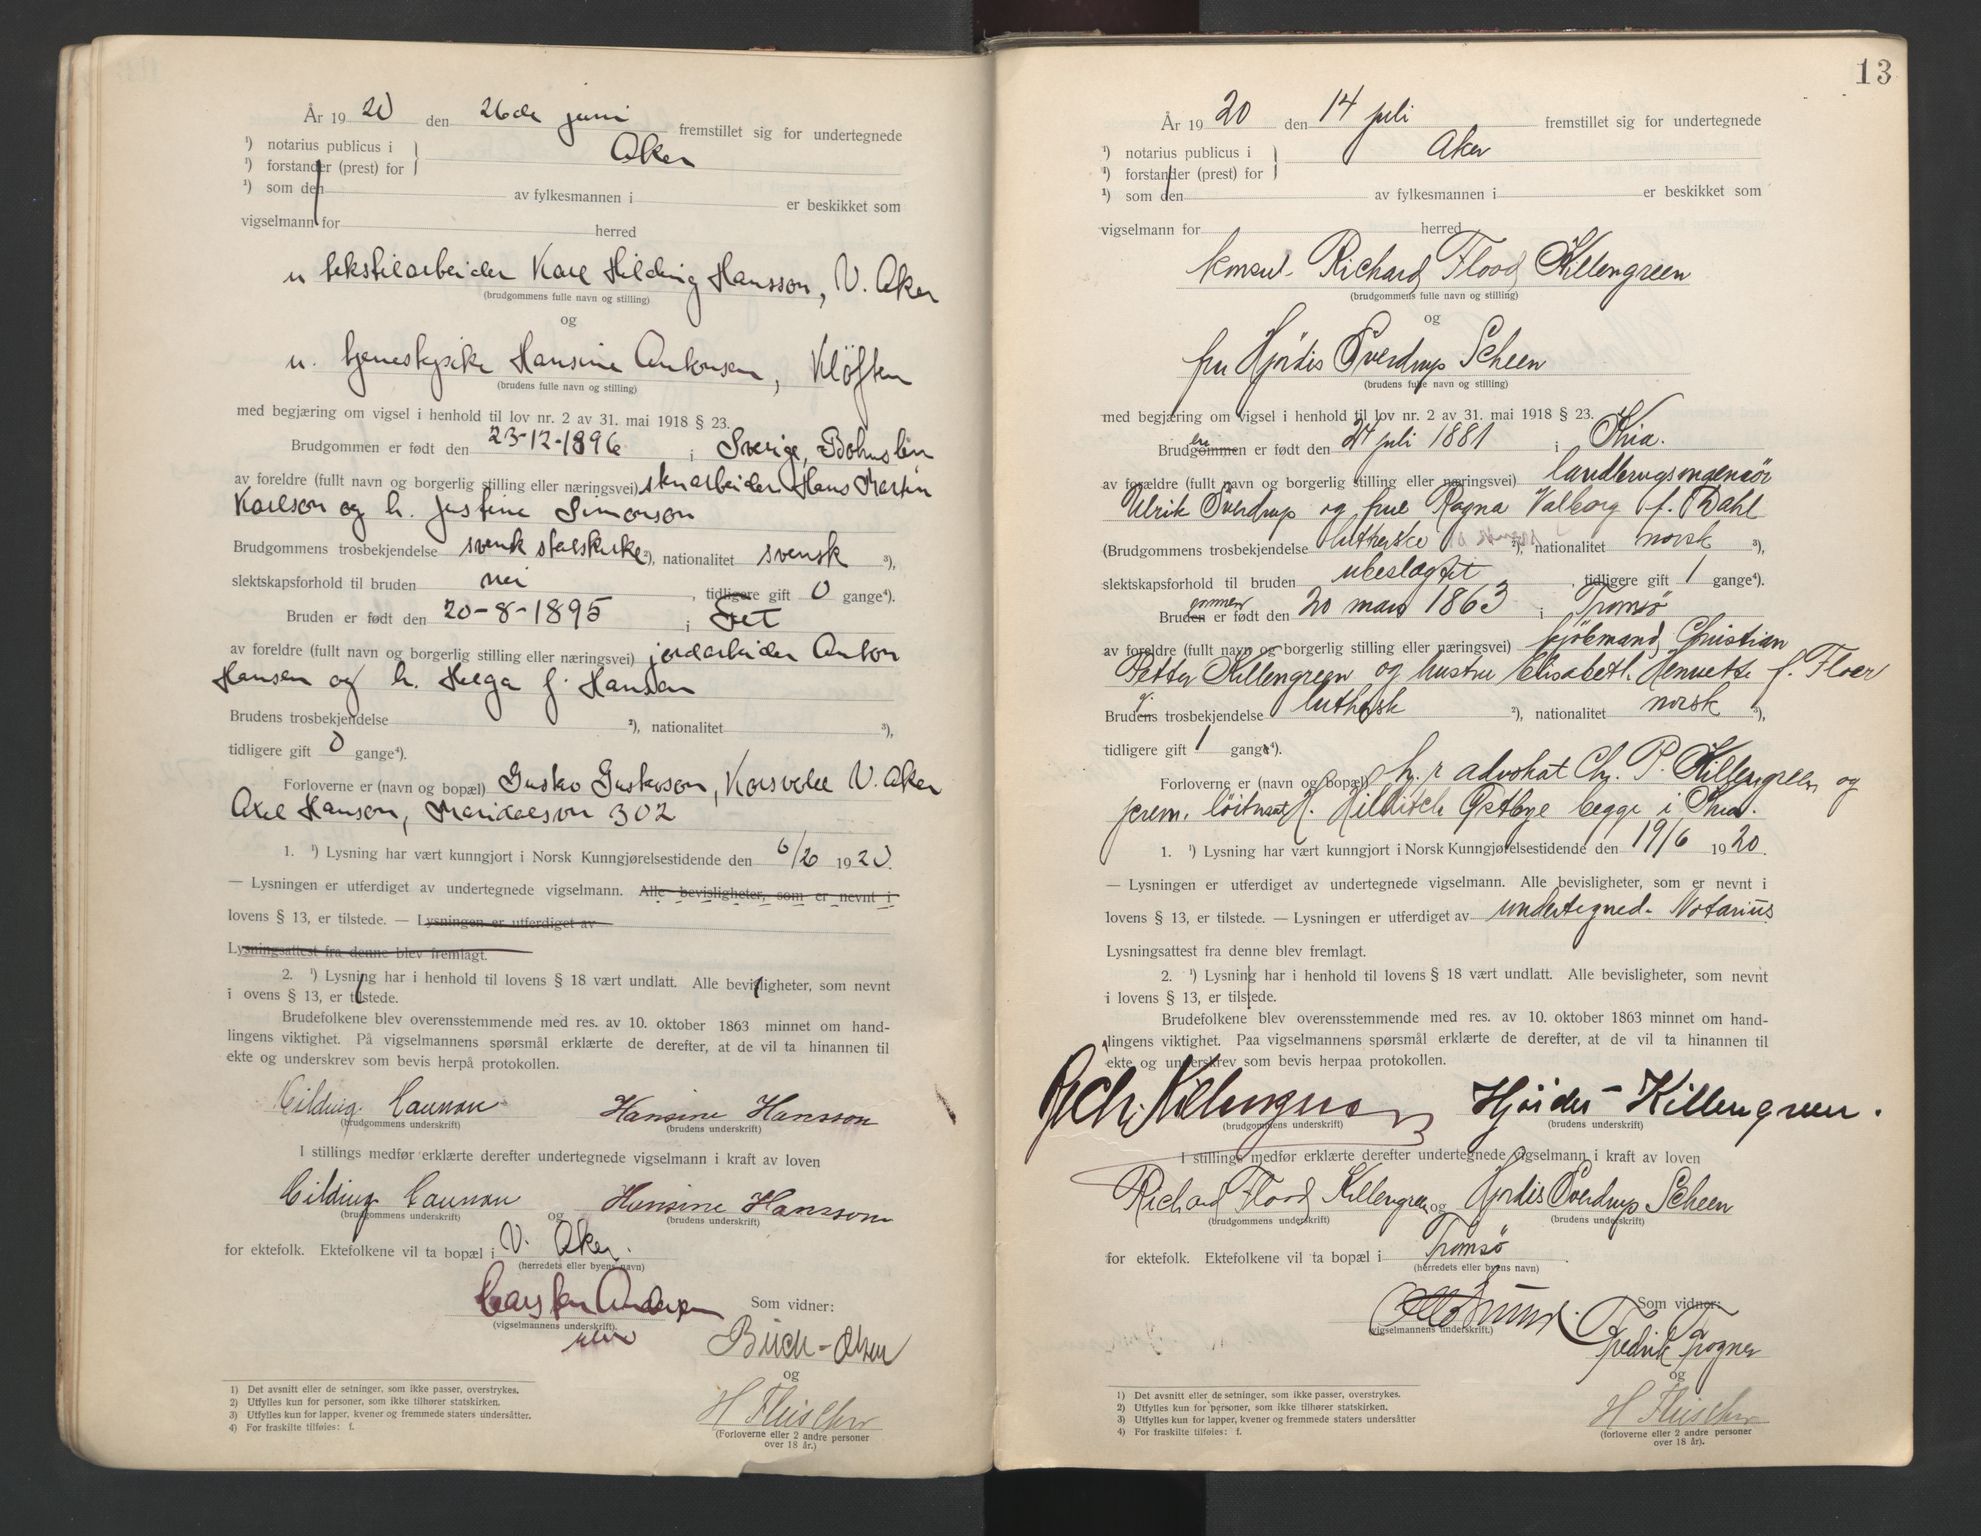 År 1920 den 26de juni fremstillet sig for undertegnede
¹) notarius publicus i } Aker
¹) forstander (prest) for
¹) som den av fylkesmannen i er beskikket som
vigselmann for herred
u tekstilarbeider Karl Hilding Hansson, V. Aker
(brudgommens fulle navn og stilling)
og
u. tjenestepike Hansine Antonsen, Kløften
(brudens fulle navn og stilling)
med begjæring om vigsel i henhold til lov nr. 2 av 31. mai 1918 § 23.
Brudgommen er født den 23-12-1896 i Sverige, Bohuslen
av foreldre (fullt navn og borgerlig stilling eller næringsvei) stenarbeider Hans Martin
Karlson og h. Justine Simonson
Brudgommens trosbekjendelse svensk statskirke ²), nationalitet svensk ³),
slektskapsforhold til bruden nei, tidligere gift 0 gange⁴).
Bruden er født den 20-8-1895 i Fet
av foreldre (fullt navn og borgerlig stilling eller næringsvei) jordarbeider Anton
Hansen og h. Helga f. Hansen
Brudens trosbekjendelse ²), nationalitet ³),
tidligere gift 0 gange⁴).
Forloverne er (navn og bopæl) Gustav Gustavson, Korsvold V. Aker
Axel Hanson, Maridalsvn 302
1. ¹) Lysning har vært kunngjort i Norsk Kunngjørelsestidende den 6/6 1920.
— Lysningen er utferdiget av undertegnede vigselmann. Alle bevisligheter, som er nevnt i
lovens § 13, er tilstede. — Lysningen er utferdiget av
Lysningsattest fra denne blev fremlagt.
2. ¹) Lysning har i henhold til lovens § 18 vært undlatt. Alle bevisligheter, som nevnt
i ovens § 13, er tilstede.
Brudefolkene blev overensstemmende med res. av 10. oktober 1863 minnet om hand-
lingens viktighet. På vigselmannens spørsmål erklærte de derefter, at de vil ta hinannen til
ekte og underskrev som bevis herpå protokollen.
Hilding Hansson Hansine Hansson
(brudgommens underskrift) (brudens underskrift)
I stillings medfør erklærte derefter undertegnede vigselmann i kraft av loven
Hilding Hansson og Hansine Hansson
(brudgommens underskrift) (brudens underskrift)
for ektefolk. Ektefolkene vil ta bopæl i V. Aker.
(herredets eller byens navn)
Carsten Andersen Som vidner:
(vigselmannens underskrift).
Birch-Olsen
og
H Fleischer
(Forloverne eller 2 andre personer
over 18 år.)
1) Det avsnitt eller de setninger, som ikke passer, overstrykes.
2) Utfylles kun for personer, som ikke tilhører statskirken.
3) Utfylles kun for lapper, kvener og fremmede staters undersåtter.
4) For fraskilte tilføies: f.
13
År 1920 den 14 juli fremstillet sig for undertegnede
¹) notarius publicus i } Aker
¹) forstander (prest) for
¹) som den av fylkesmannen i er beskikket som
vigselmann for herred
konsul Richard Flood Killengreen
(brudgommens fulle navn og stilling)
og
fru Hjørdis Sverdrup Scheen
(brudens fulle navn og stilling)
med begjæring om vigsel i henhold til lov nr. 2 av 31. mai 1918 § 23.
Brudgommen en er født den 24 juli 1881 i Kria.
av foreldre (fullt navn og borgerlig stilling eller næringsvei) landbrugsingeniør
Ulrik Sverdrup og frue Ragna Valborg f. Dahl
(Brudgommens trosbekjendelse lutherske ²), nationalitet norsk ³),
slektskapsforhold til bruden ubeslægtet, tidligere gift 1 gange⁴).
Bruden gommen er født den 20 mars 1863 i Tromsø
av foreldre (fullt navn og borgerlig stilling eller næringsvei) kjøbmand Christian
Petter Killengreen og hustru Elisabeth Henriette f. Floer
Brudens g. trosbekjendelse luthersk ²), nationalitet norsk ³),
tidligere gift 1 gange⁴).
Forloverne er (navn og bopæl) h. r advokat Ch. P. Killengreen og
prem. løitnant H. Hilditch Østbye begge i Kria.
1. ¹) Lysning har vært kunngjort i Norsk Kunngjørelsestidende den 19/6 1920.
— Lysningen er utferdiget av undertegnede vigselmann. Alle bevisligheter, som er nevnt i
lovens § 13, er tilstede. — Lysningen er utferdiget av undertegned. Notarius
Lysningsattest fra denne blev fremlagt.
2. ¹) Lysning har i henhold til lovens § 18 vært undlatt. Alle bevisligheter, som nevnt
i lovens § 13, er tilstede.
Brudefolkene blev overensstemmende med res. av 10. oktober 1863 minnet om hand-
lingens viktighet. Paa vigselmannens spørsmål erklærte de derefter, at de vil ta hinannen til
ekte og underskrev som bevis herpaa protokollen.
Rich. Killengreen Hjørdis Killengreen.
(brudgommens underskrift) (brudens underskrift)
I stillings medfør erklærte derefter undertegnede vigselmann i kraft av loven
Richard Flood Killengreen og Hjørdis Sverdrup Scheen
(brudgommens underskrift) (brudens underskrift)
for ektefolk. Ektefolkene vil ta bopæl i Tromsø.
(herredets eller byens navn)
Som vidner:
(vigselmannens underskrift.)
Fredrik Trogner
og
H Fleischer
(forloverne eller 2 andre personer
over 18 år).
1) Det avsnitt eller de setninger, som ikke passer, overstrykes.
2) Utfylles kun for personer, som ikke tilhører statskirken.
3) Utfylles kun for lapper, kvener og fremmede staters undersåtter
4) For fraskilte tilføies: f.